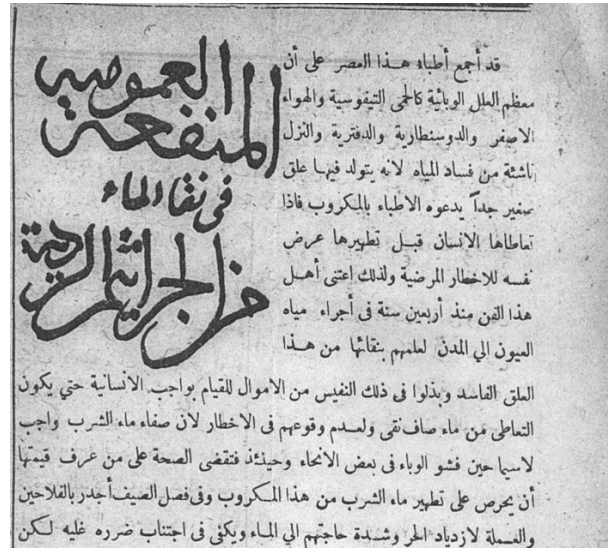 المنفعة العمومية
في نقاء الماء
من الجراثيم الردية
قد أجمع أطباء هذا العصر على أن
معظم العلل الوبائية كالحمى التيفوسية والهواء
الاصفر والدوسنطارية والدفترية والنزل
ناشئة من فساد المياه لانه يتولد فيها علق
صغير جداً يدعوه الاطباء بالمكروب فاذا
تعاطاها الانسان قبل تطهيرها عرض
نفسه للاخطار المرضية ولذلك اعتنى أهل
هذا الفن منذ أربعين سنة فى أجراء مياه
العيون الي المدن لعلمهم بنقائها من هذا
العلق الفاسد وبذلوا فى ذلك النفيس من الاموال للقيام بواجب الانسانية حتي يكون
التعاطى من ماء صاف نقى ولعدم وقوعهم فى الاخطار لان صفاء ماء الشرب واجب
لاسيما حين فشو الوباء فى بعض الانحاء وحينئذ فتقضى الصحة على من عرف قيمتها
أن يحرص على تطهير ماء الشرب من هذا المكروب وفى فصل الصيف أجدر بالفلاحين
والعملة لازدياد الحر وشدة حاجتهم الي الماء ويكفى فى اجتناب ضرره غليه لكن